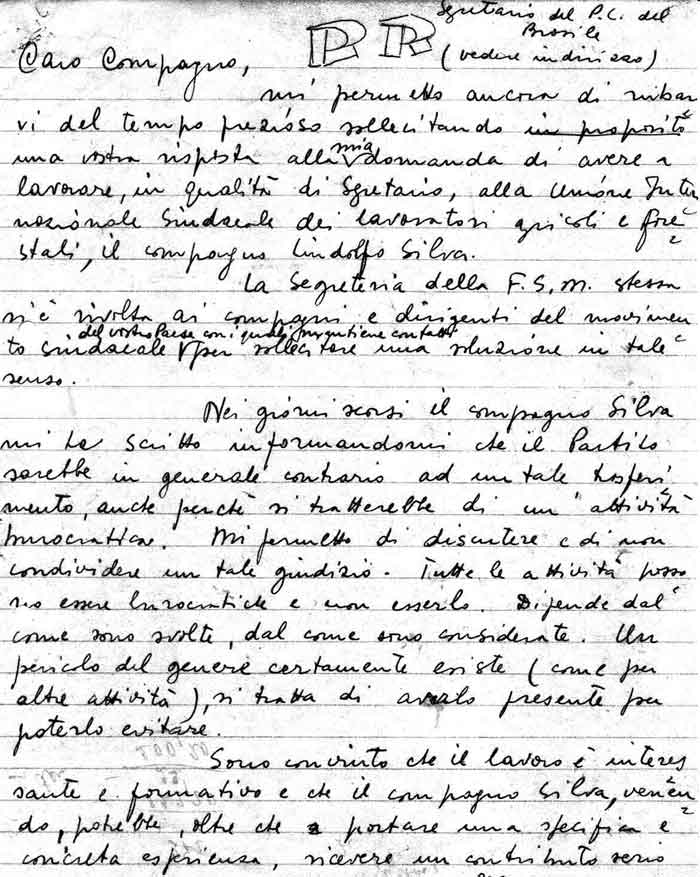 Sgretario del P.C. del
Brasile
(vedere indirizzo)
PR
Caro Compagno,
mi permetto ancora di rubar
vi del tempo prezioso sollecitando in proposito
una vostra risposta alla mia domanda di avere a
lavorare, in qualità di Sgretario, alla Unione Inter
nazionale Sindacale dei lavoratori agricoli e fore
stali, il compagno Lindolfo Silva.
La Segreteria della F.S.M. stessa
si è rivolta ai compagni e dirigenti del movimen
del vostro Paese con i quali mantiene contatti
to sindacale per sollecitare una soluzione in tale
senso.
Nei giorni scorsi il compagno Silva
mi ha scritto informandomi che il Partito
sarebbe in generale contrario ad un tale trasferi
mento, anche perchè si tratterebbe di un'attività
burocratica. Mi permetto di discutere e di non
condividere un tale giudizio. Tutte le attività posso
no essere burocratiche e non esserlo. Dipende dal
come sono svolte, dal come sono considerate. Un
pericolo del genere certamente esiste (come per
altre attività), si tratta di averlo presente per
poterlo evitare.
Sono convinto che il lavoro è interes
sante e formativo e che il compagno Silva, venen
do, potrebbe, oltre che portare una specifica e
concreta esperienza, ricevere un contributo serio